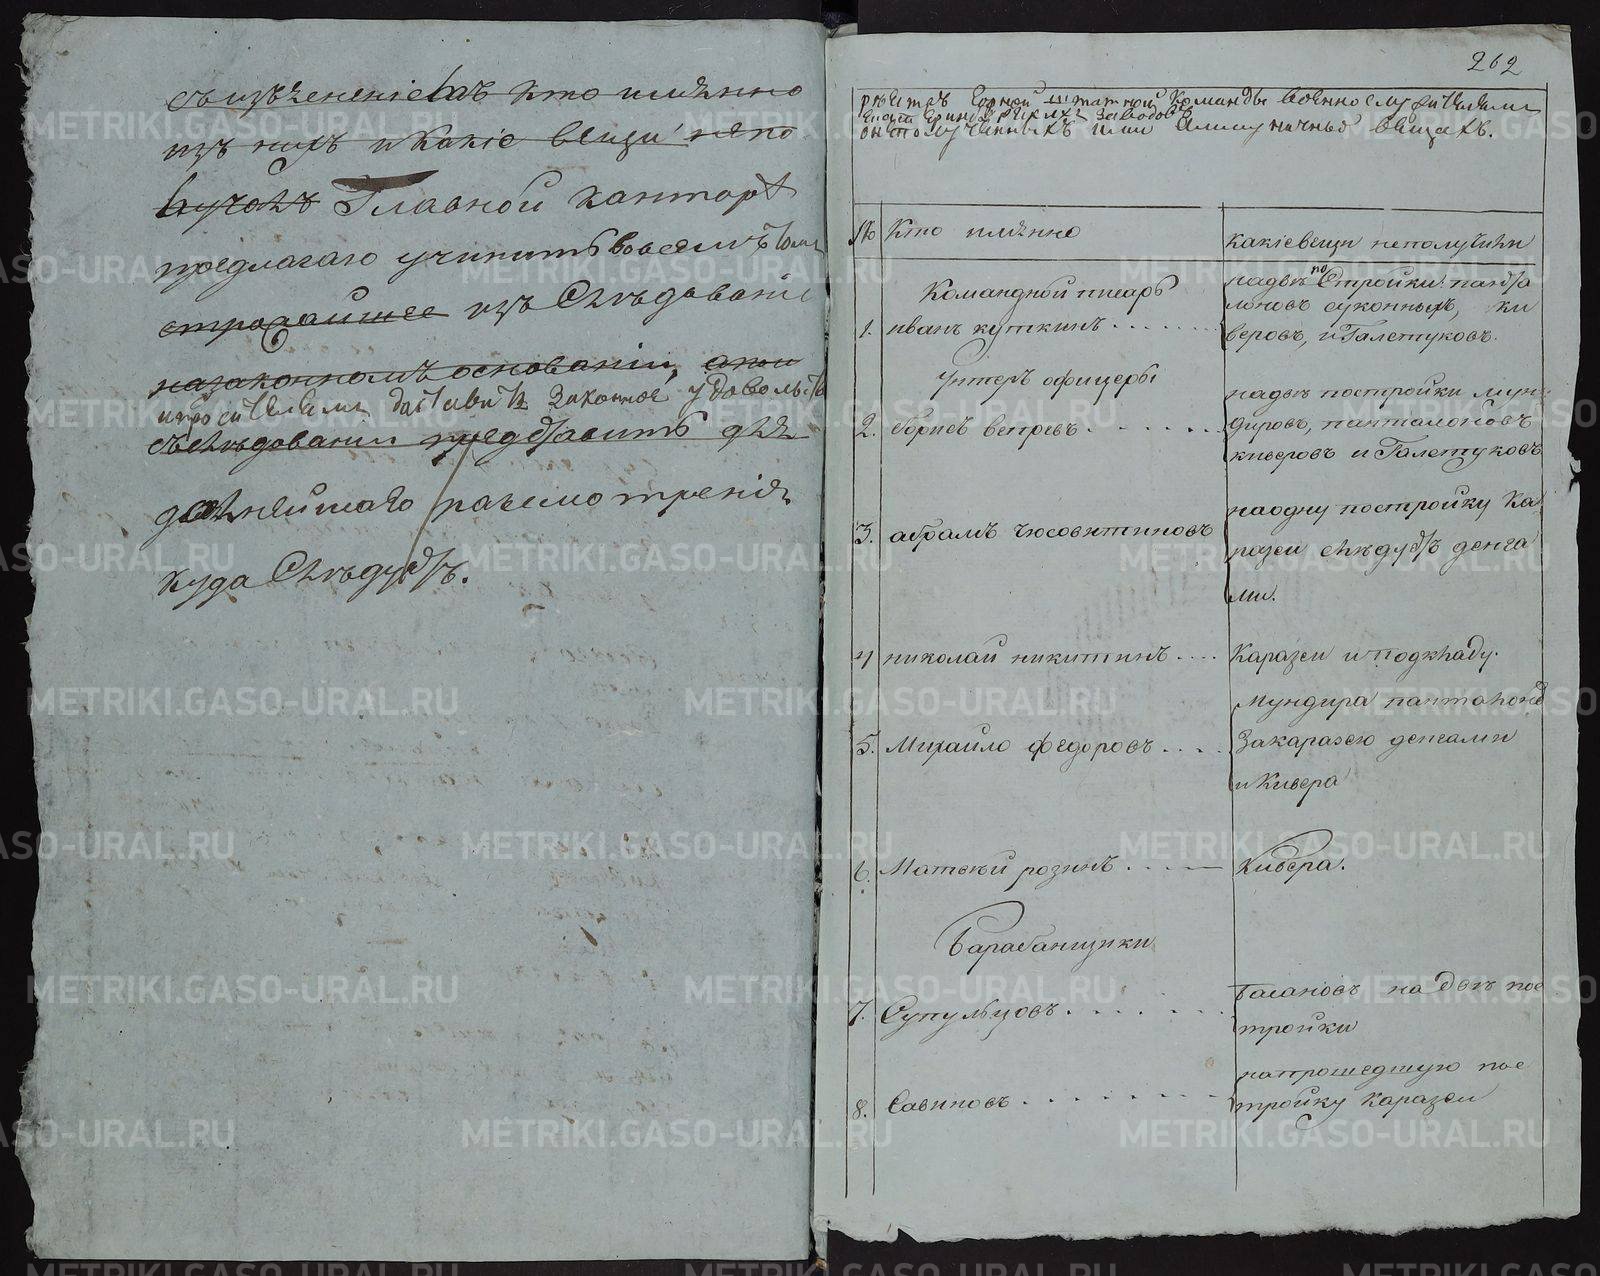 съ изъясненіемъ кто имянно
изъ нихъ и какіе вещи непо
лучалъ Главной канторѣ
предлагаю учинить во всемъ томъ
строжайшее изъ слѣдованіе
на законномъ основаніи,
и просителямъ доставить законное удовольств
слѣдованіи представить для
далнейшаго разсмотренія
куда слѣдуетъ.
262
Горной штатной команды военнослужителямъ
заводовъ
о неполученныхъ ими амуничныхъ вещахъ.
№ Кто имянно
какіе вещи неполучили
Командной писарь
1. иванъ куткинъ
на двѣ по стройки пантa
лоновъ суконныхъ, ки
веровъ, и галстуковъ.
Унтеръ офицеры
2. борисъ вепревъ
на двѣ постройки мун
дировъ, панталоновъ
киверовъ и Галстуковъ
3. абрамъ чюсовитиновъ
на одну постройку ка
разеи слѣдуетъ денга
ми.
4 николай никитинъ
Каразеи и подкладу.
5. Михаило федоровъ
Мундира панталонъ
За каразею денгами
и Кивера
6. Матвѣй розинъ
Кивера.
Барабанщики
7. Супульцовъ
на двѣ пос
тройки
8. Савиновъ
на прошедшую пос
тройку Каразеи
METRIKI.GASO-URAL.RU